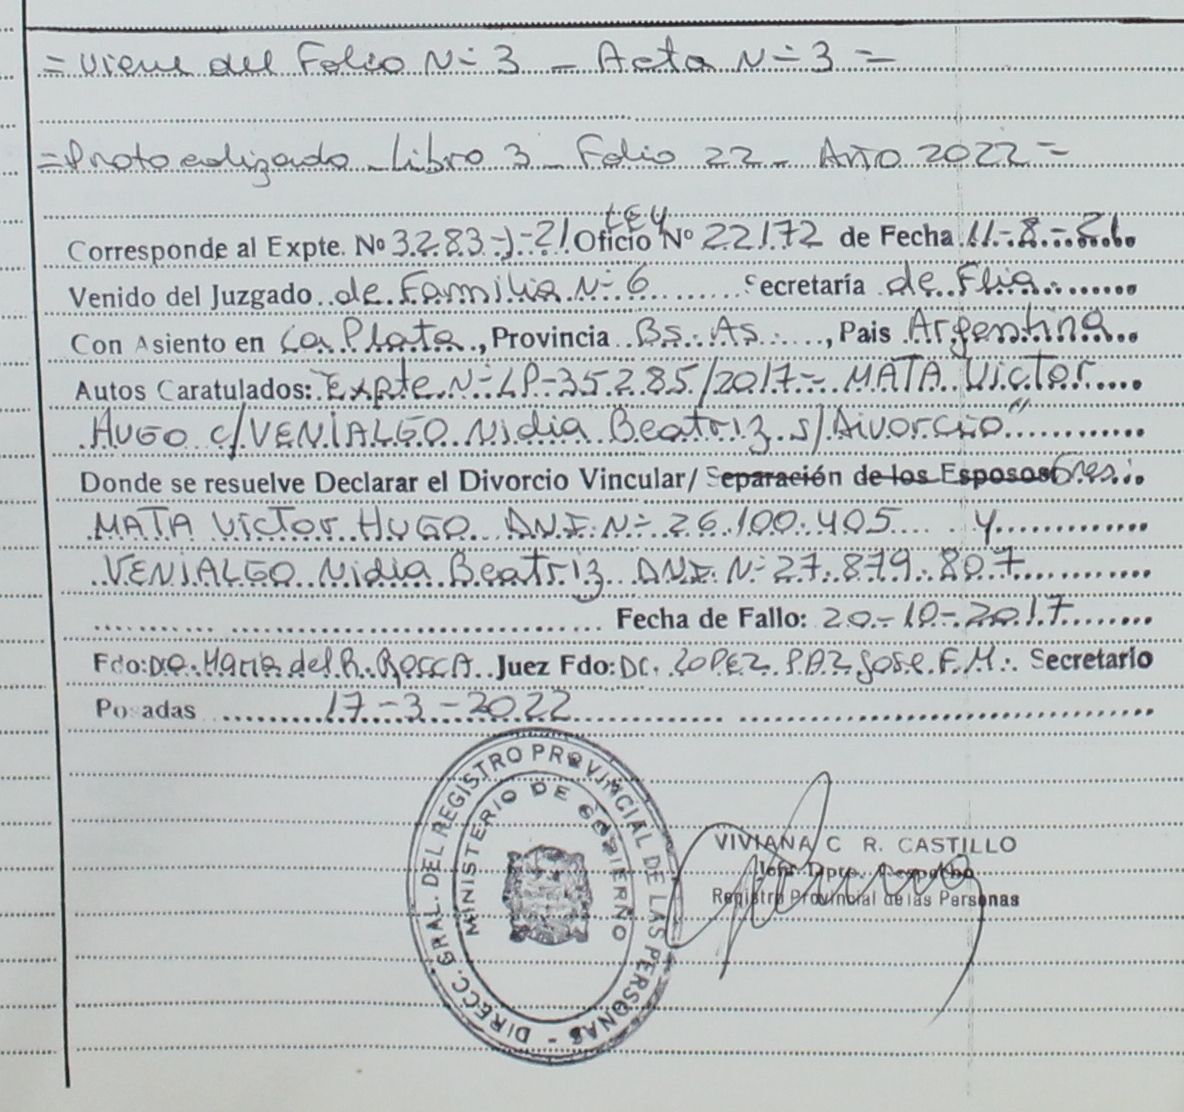 = Viene del Folio Nº 3 - Acta Nº 3 =
= Protocolizado - Libro 3 - Folio 22 - Año 2022 =
LEY
Corresponde al Expte. Nº 3283-J-21 Oficio Nº 22172 de Fecha 11-8-21
Venido del Juzgado de Familia Nº 6 Secretaría de Flia
Con Asiento en La Plata, Provincia Bs. As., Pais Argentina
Autos Caratulados: Expte Nº LP-35285/2017 - MATA Victor
HUGO c/ VENIALGO Nidia Beatriz s/ Divorcio"
Donde se resuelve Declarar el Divorcio Vincular/ Separación de los Esposos Sres:
MATA Victor HUGO DNI. Nº 26.100.405 y
VENIALGO Nidia Beatriz DNI. Nº 27.879.807
Fecha de Fallo: 20-10-2017
Fdo: Dra. Maria del R. ROCCA Juez Fdo: Dr. LOPEZ PAZ Jose F.M. Secretario
Posadas 17-3-2022
DIRECC. GRAL. DEL REGISTRO PROVINCIAL DE LAS PERSONAS -
MINISTERIO DE GOBIERNO
VIVIANA C R. CASTILLO
Jefe Dpto. Despacho
Registro Provincial de las Personas